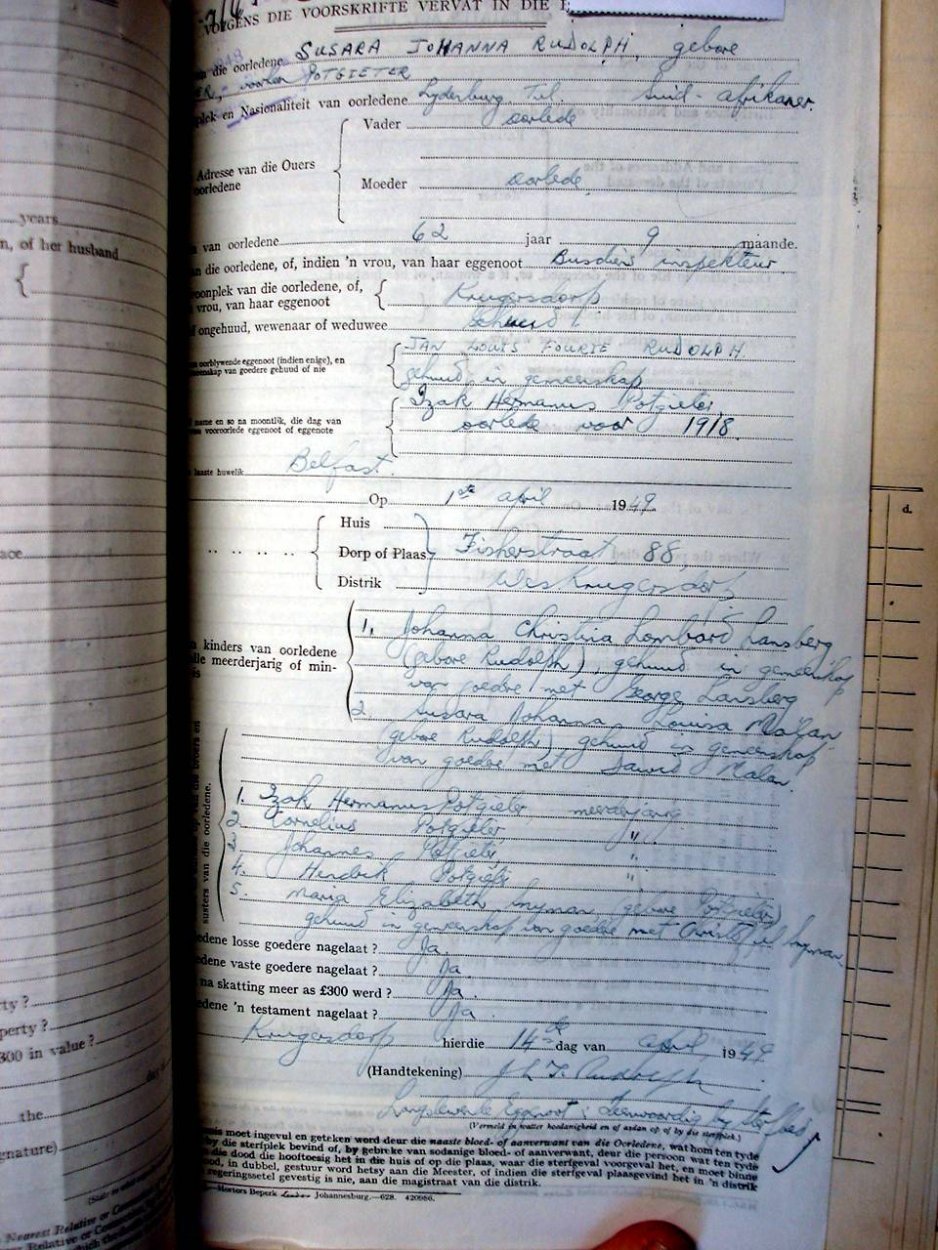 VOLGENS DIE VOORSKRIFTE VERVAT IN DIE
die oorledene SUSARA JOHANNA RUDOLPH, gebore
voorheen POTGIETER
plek en Nasionaliteit van oorledene Lydenburg Tvl. Suid-afrikaner.
Vader oorlede
Adresse van die Ouers
oorledene
Moeder oorlede
van oorledene 62 jaar 9 maande.
die oorledene, of, indien 'n vrou, van haar eggenoot Busdiens inspekteur
woonplek van die oorledene, of,
vrou, van haar eggenoot Krugersdorp
ongehuud, wewenaar of weduwee gehuud
JAN LOUIS FOURIE RUDOLPH
oorblywende eggenoot (indien enige), en
van goedere gehuud of nie gehuud in gemeenskap
Izak Hermanus Potgieter,
name en so na moontlik, die dag van
vooroorlede eggenoot of eggenote oorlede voor 1918.
laaste huwelik Belfast.
Op 1ste April 1949
Huis
Dorp of Plaas Fisherstraat 88,
Distrik Wes Krugersdorp
1. Johanna Christina Lombard Lansberg
kinders van oorledene
alle meerderjarig of min-
(gebore Rudolph), gehuud in gemeenskap
van goedere met George Lansberg
2. Susara Johanna Louisa Malan
(gebore Rudolph), gehuud in gemeenskap
van goedere met Dawid Malan.
susters van die oorledene.
1. Izak Hermanus Potgieter meerderjarig
2. Cornelius Potgieter "
3 Johannes Potgieter "
4. Hendrik Potgieter "
5. Maria Elizabeth Snyman, gebore Potgieter)
gehuud in gemeenskap van goedere met Snyman.
losse goedere nagelaat? Ja.
vaste goedere nagelaat? Ja.
na skatting meer as £300 werd? Ja.
'n testament nagelaat? Ja.
Krugersdorp hierdie 14de dag van April, 1949
(Handtekening) J L F Rudolph
Eggenoot: teenwoordig by sterfbed
(Vermeld in watter hoedanigheid en of aldan op of by die sterfplek.)
moet ingevul en geteken word deur die naaste bloed- of aanverwant van die Oorledene, wat hom ten tyde
by die sterfplek bevind of, by gebreke van sodanige bloed- of aanverwant, deur die persoon wat ten tyde
die dood die hooftoesig het in die huis of op die plaas, waar die sterfgeval voorgeval het, en moet binne
in dubbel, gestuur word hetsy aan die Meester, of indien die sterfgeval plaasgevind het in 'n distrik
gevestig is nie, aan die magistraat van die distrik.
Mortors Beperk Johannesburg.—628. 420986.
years
of her husband
property?
£300 in value?
the
d.
Nearest Relative or